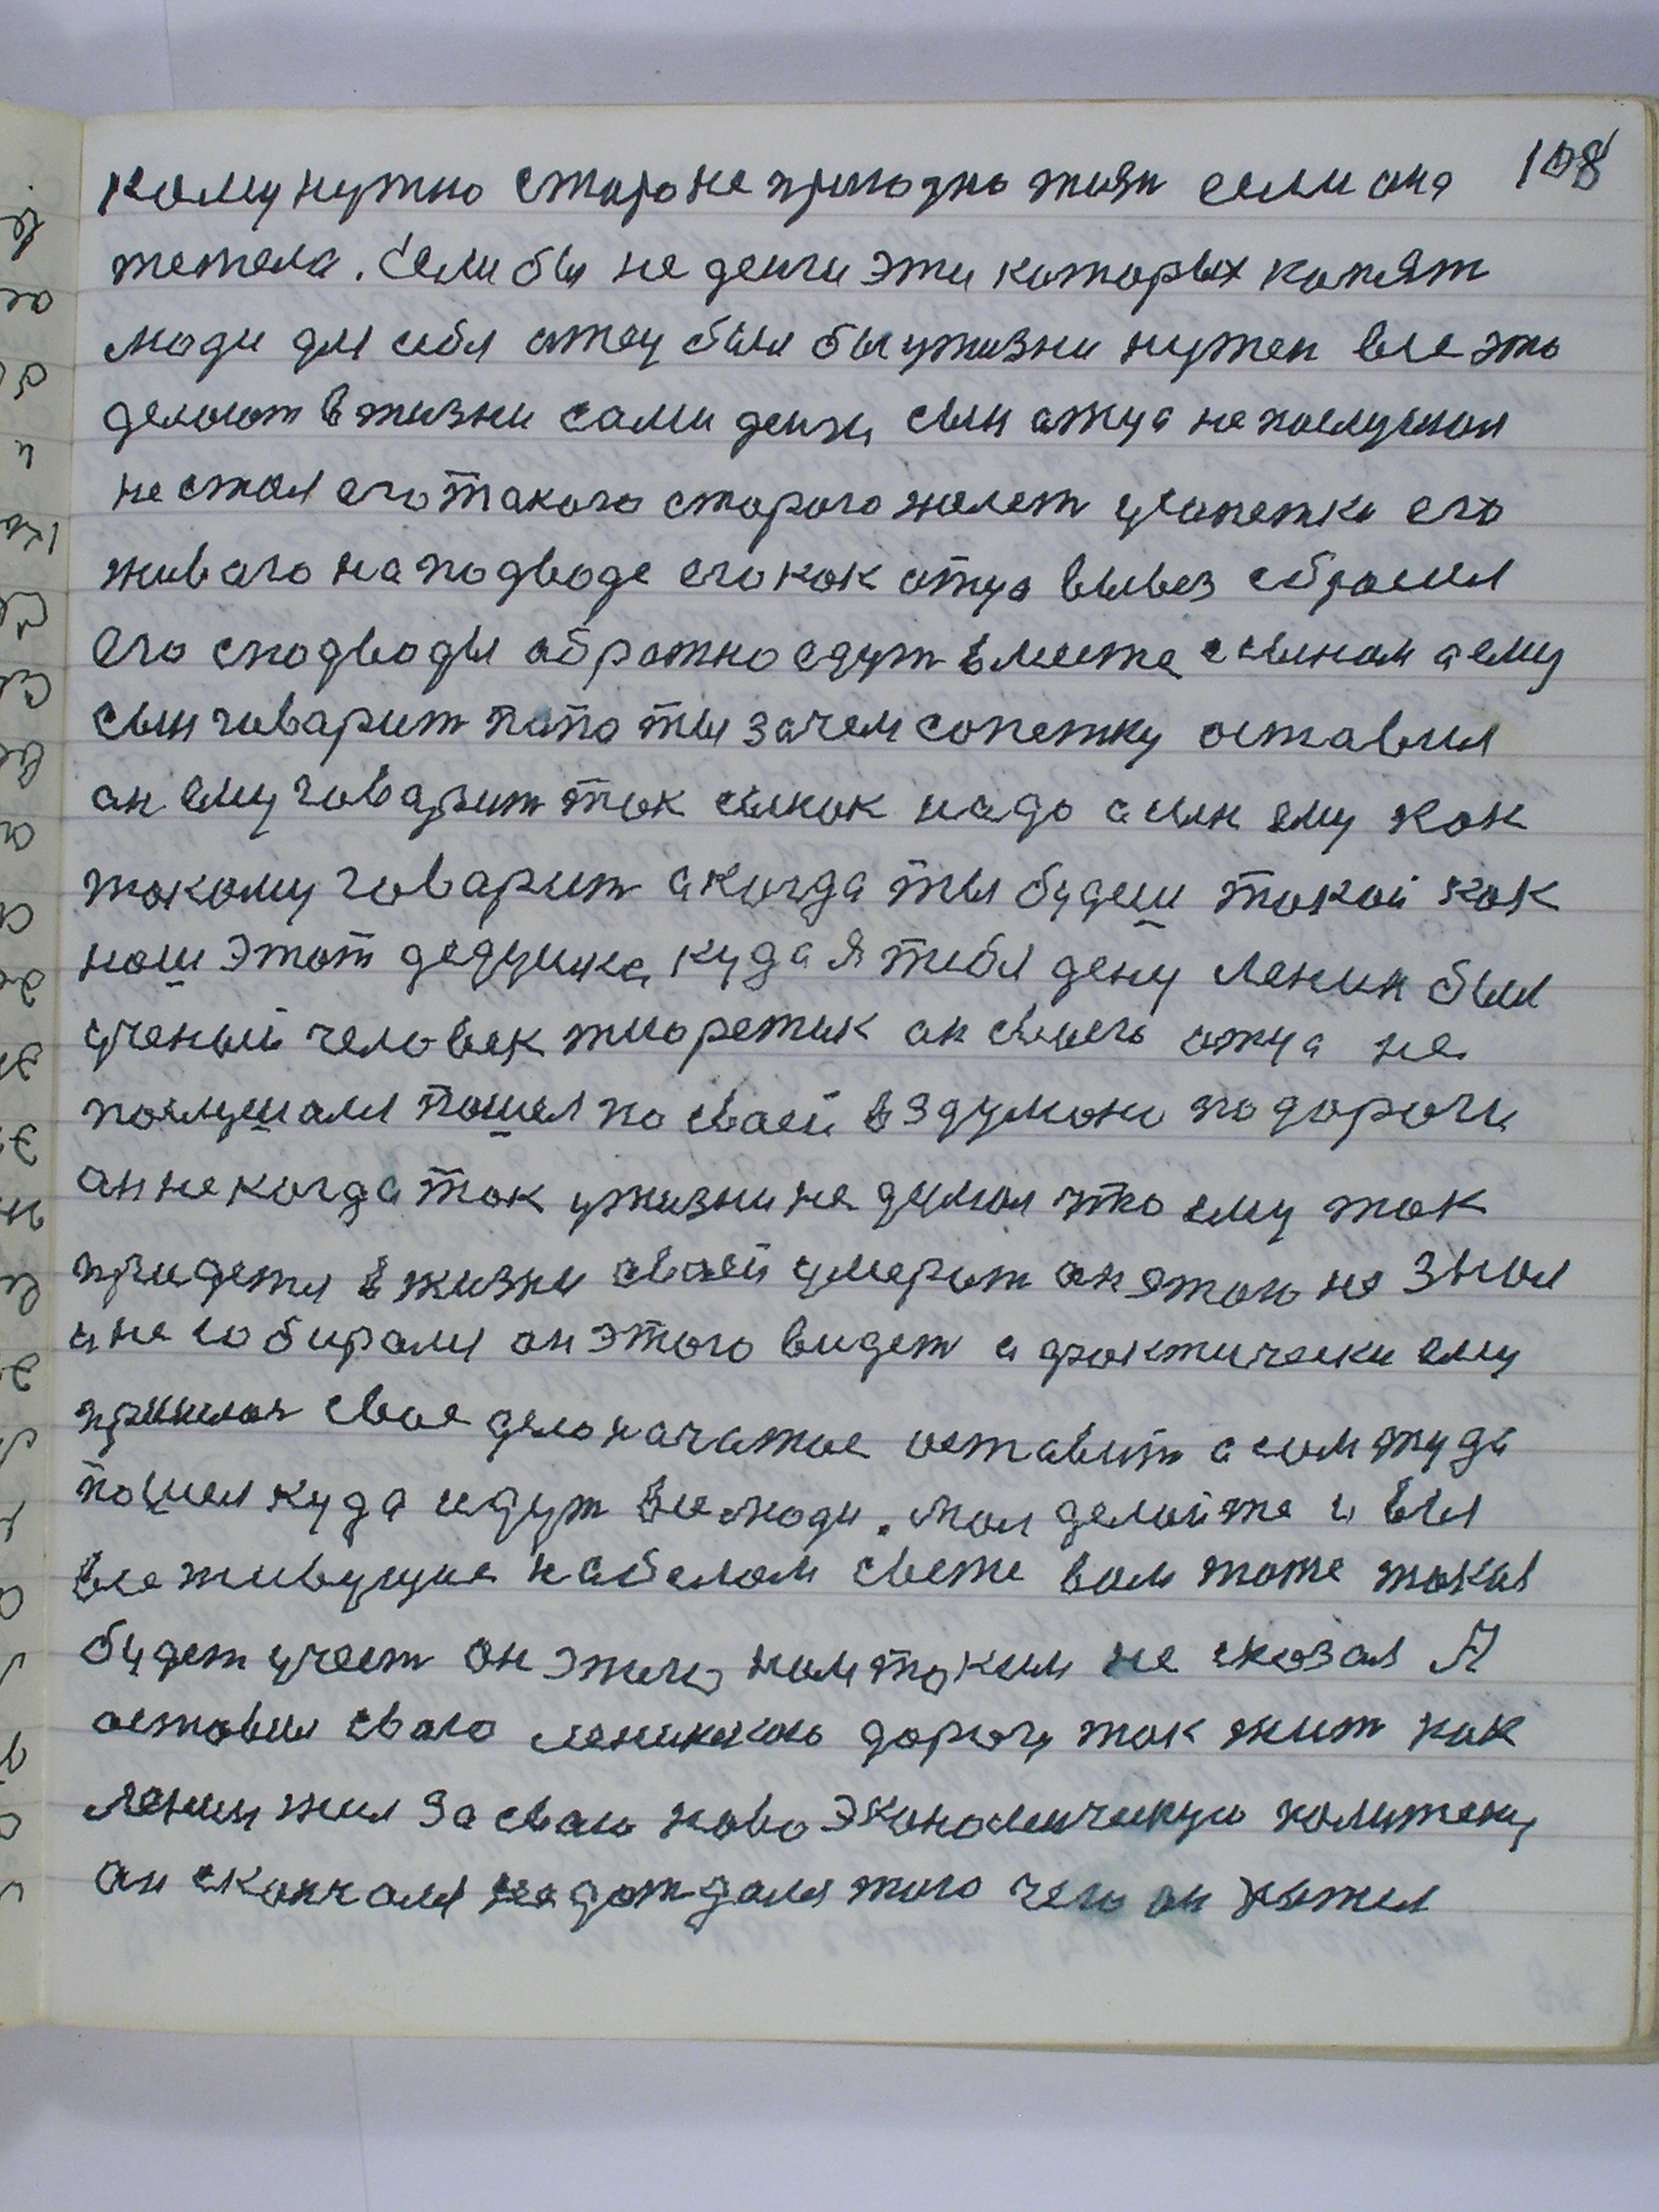 108
кому нужно старо не пригодно жизн если она
тежела. Если бы не денги эти которых копят
люди для себя отец был бы ужизни нужен все это
делоют в жизни сами денги сын атца не послушал
не стал его такого старого жалет усапетки его
живаго на подводе его как атца вывез сбросил
его сподводы абратно едут вместе с сыном а ему
сын говарит папа ты зачем сопетку оставил
ан ему говарит так сынок надо а сын ему как
такому говарит а когда ты будеш такой как
наш этот дедушка куда я тибя дену Ленин был
ученый человек тиоретик ан своего атца не
послушался пошел по сваей вздумоно подороги
ан некогда так ужизни не думал что ему так
придется в жизни сваей умерит ан этого не знал
и не собирался он этого видет а фактически ему
пришлося свое дело начатое оставит а сам туда
пошел куда идут все люди. мол делайте и вы
все живущие на белом свете вам тоже такая
будет учест он этого нам таким не сказал Я
оставил сваю ленинскою дорогу так жит как
Ленин жил за сваю ново эканомическую политеку
ан скончался не дождался того чего он хател